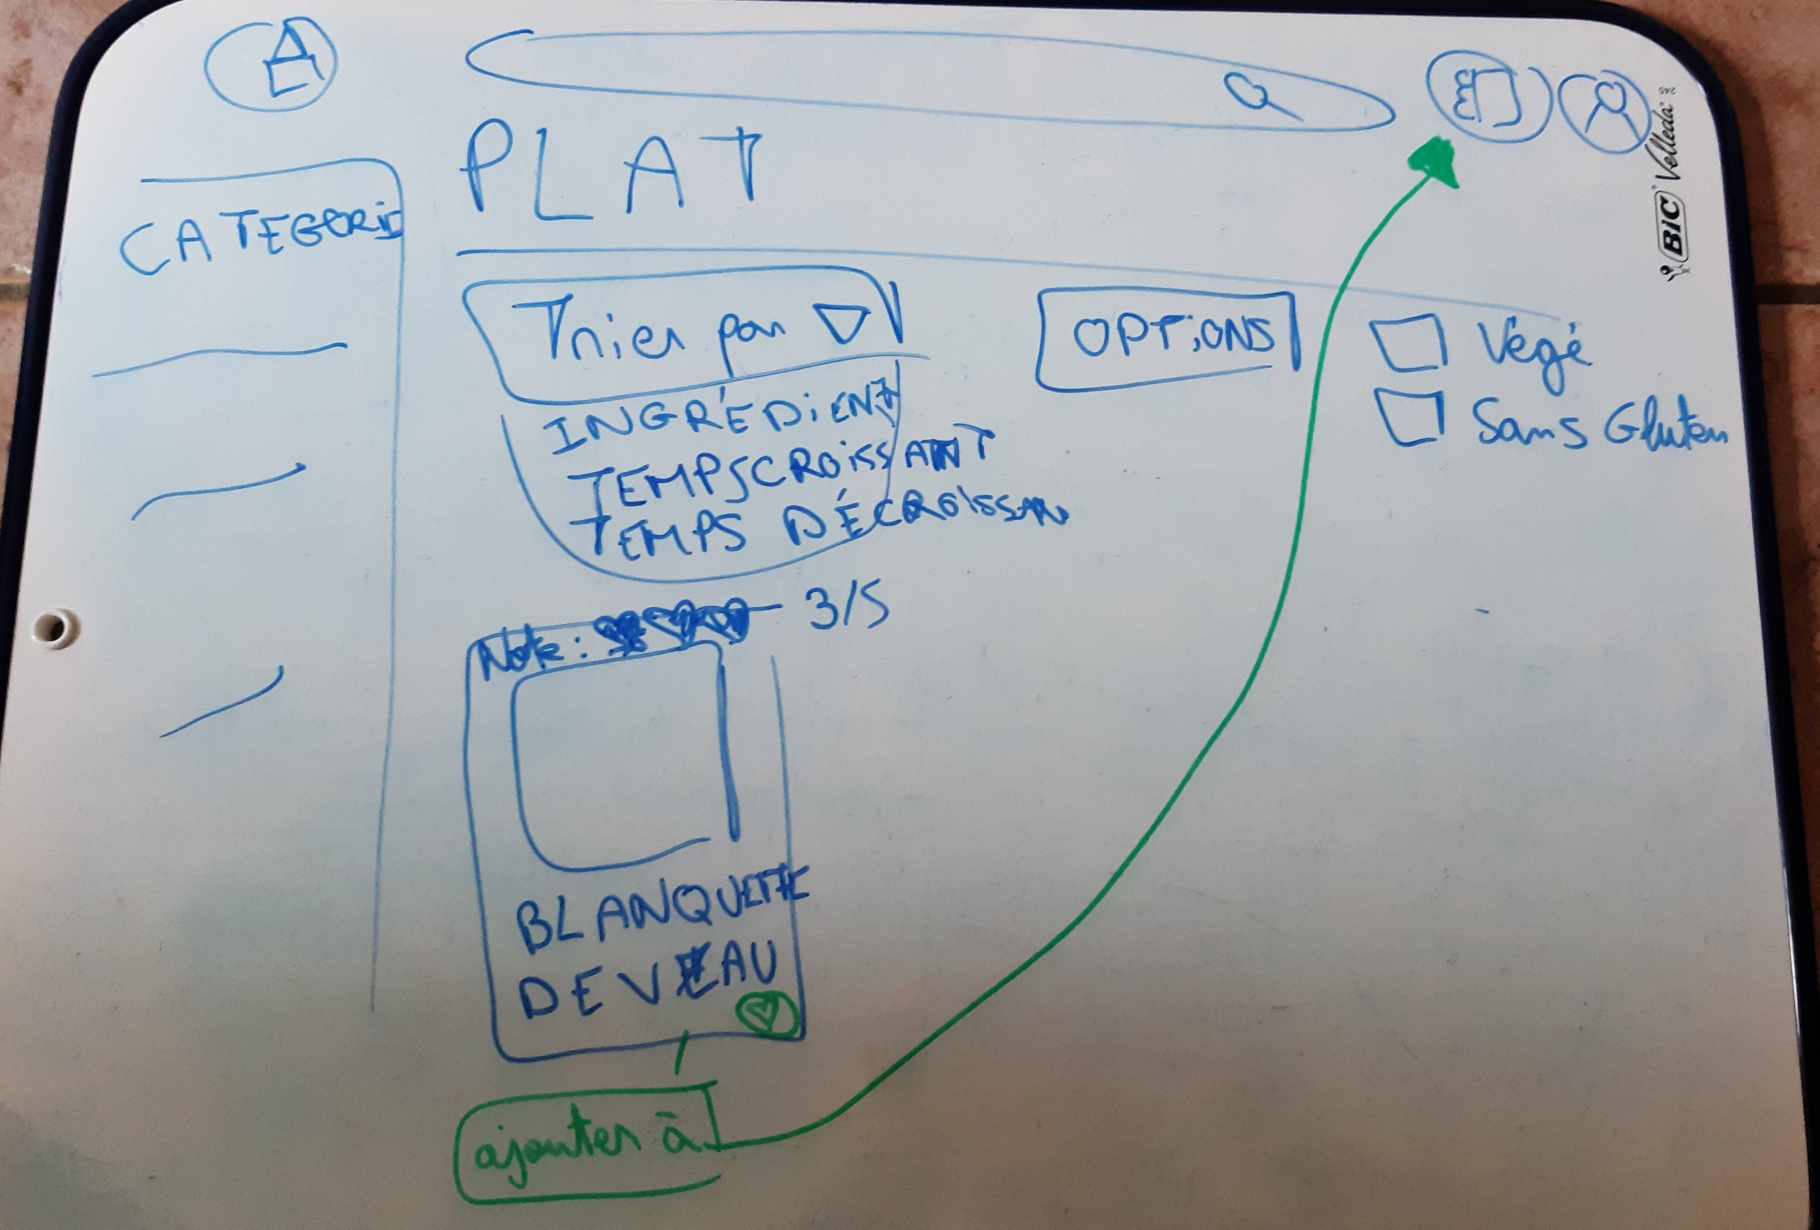 PLAT
CATEGORIE
Trier par
INGRÉDIENT
TEMPS CROISSANT
TEMPS DÉCROISSAN
OPTIONS
Végé
Sans Gluten
Note : 3/5
BLANQUETTE
DE VEAU
ajouter à
BIC Velleda